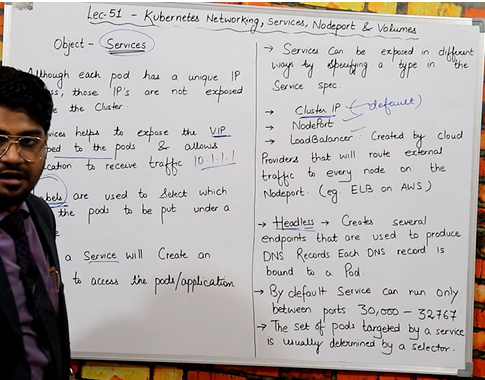 Lec-51 - Kubernetes Networking, Services, Nodeport & Volumes
Object - Services
Although each pod has a unique IP
ess, those IP's are not exposed
e the Cluster.
vices helps to expose the VIP
ped to the pods & allows
cation to receive traffic 10.1.1.1
abels are used to Select which
the pods to be put under a
a Service will Create an
to access the pods/application
→ Services Can be exposed in different
ways by specifying a type in the
Service spec.
→ Cluster IP (default)
→ NodePort
→ LoadBalancer : Created by cloud
Providers that will route external
traffic to every node on the
Nodeport. (eg ELB on AWS)
→ Headless → Creates Several
endpoints that are used to produce
DNS Records Each DNS record is
bound to a Pod.
→ By default Service can run only
between ports 30,000 - 32767
→ The set of pods targeted by a service
is usually determined by a selector.